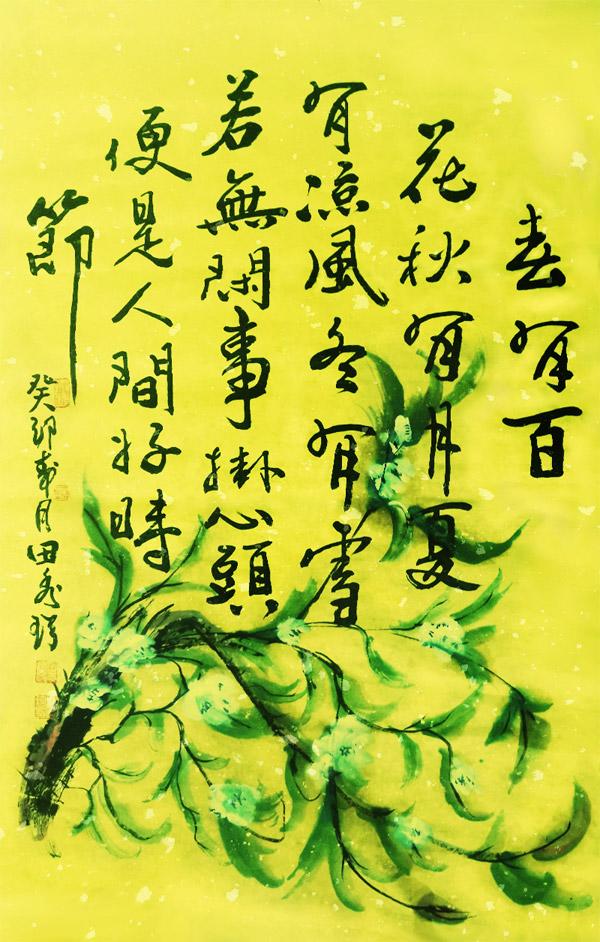 春有百
花秋有月夏
有凉風冬有雪
若無閑事掛心頭
便是人間好時
節
癸卯月田秀